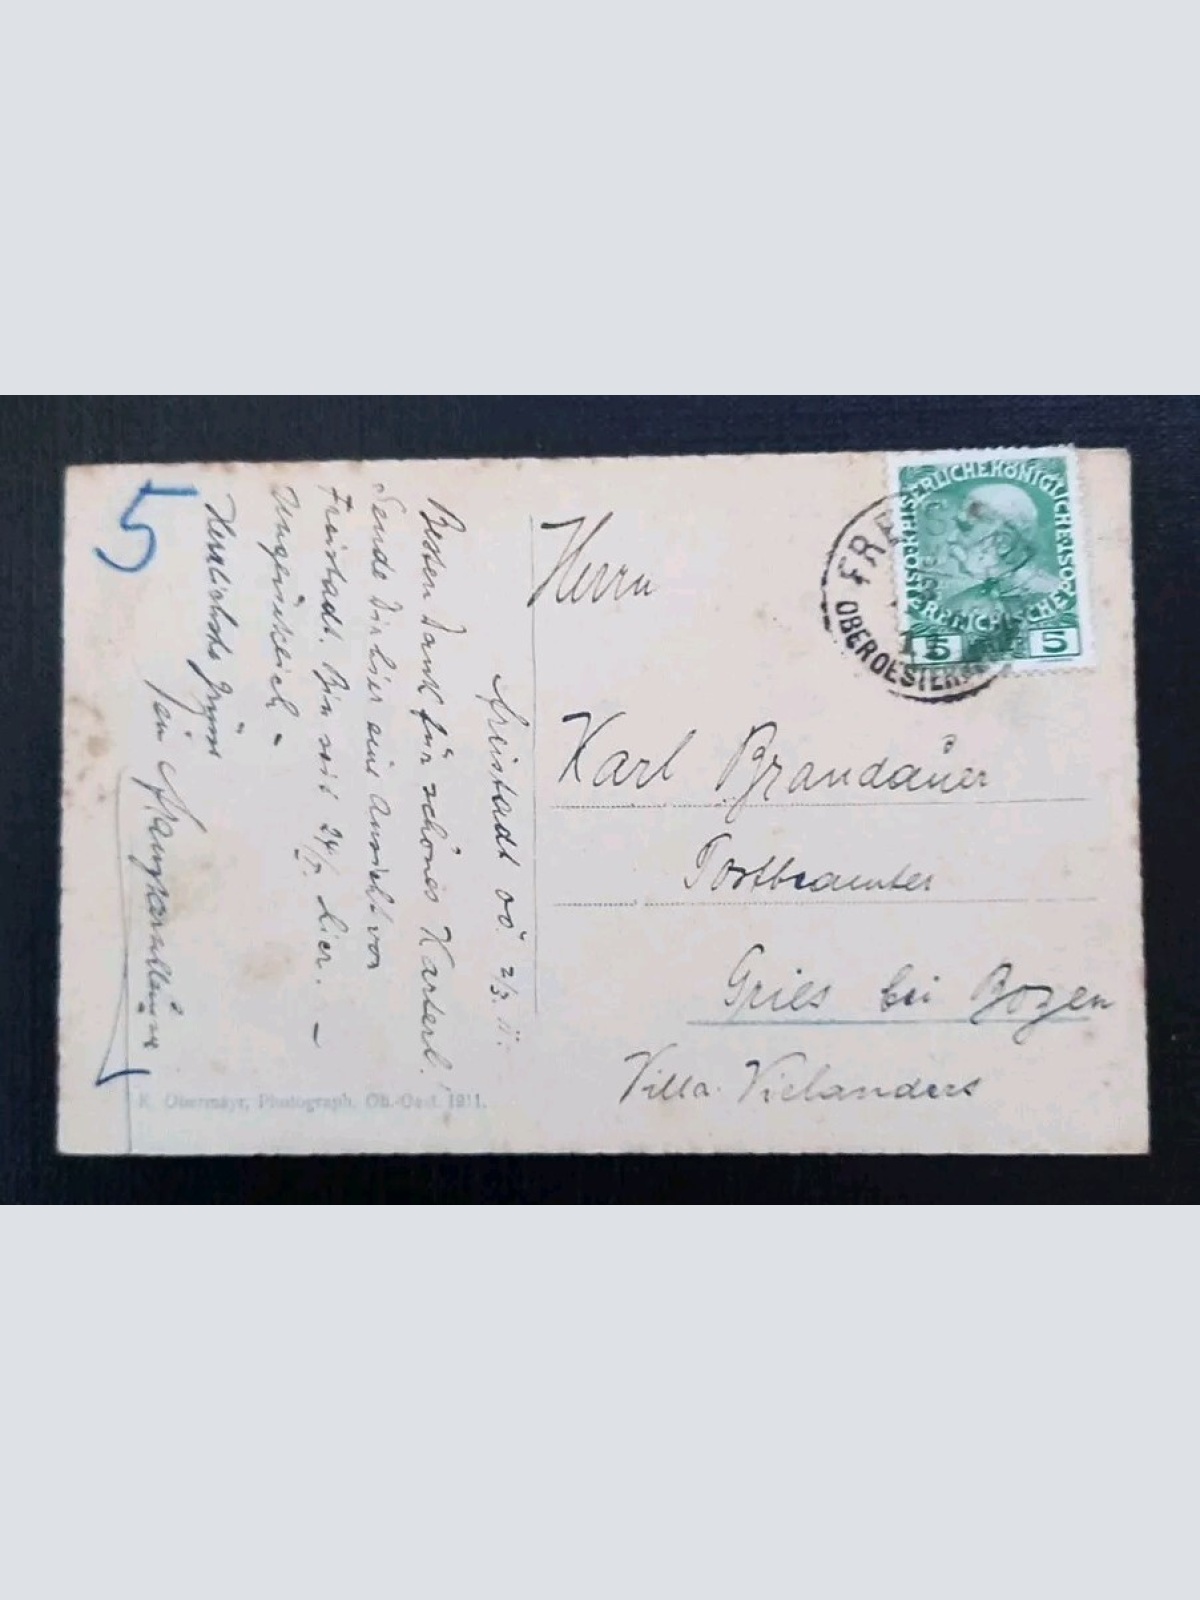 Freistadt OÖ. 2/3. 11.
Besten Dank für schönes Karterl!
Sende Dir hier eine Ansicht von
Freistadt. Bin seit 24/I. hier. –
Herzlichste Grüsse
Dein
5
Herrn
Karl Brandauer
Postbeamter
Gries bei Bozen
Villa Vielanders
KAISERLICHE KÖNIGLICHE
ÖSTERREICHISCHE POST
5 5
OBEROESTERR
K. Obermayr, Photograph, Ob.-Oest. 1911.